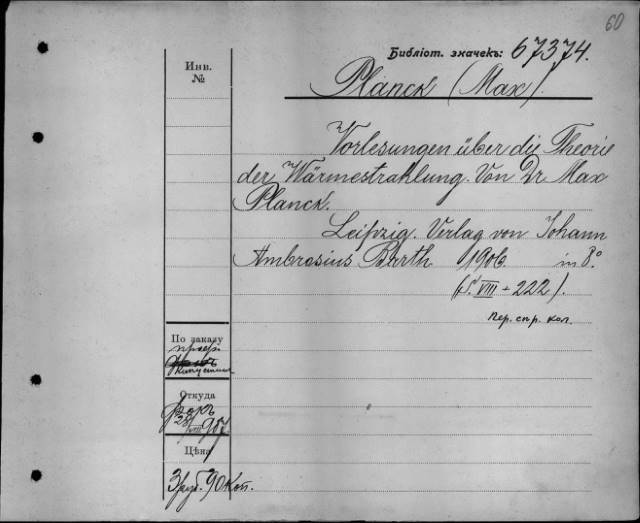 60
Библiот. значекъ: 67374.
Инв.
№
Planck (Max).
Vorlesungen über die Theorie
der Wärmestrahlung. Von Dr Max
Planck.
Leipzig. Verlag von Johann
Ambrosius Barth 1906. in 8°.
(S. VIII + 222).
Пер. спр. кол.
По заказу
Откуда
907
Цѣна
3 руб. 90 коп.